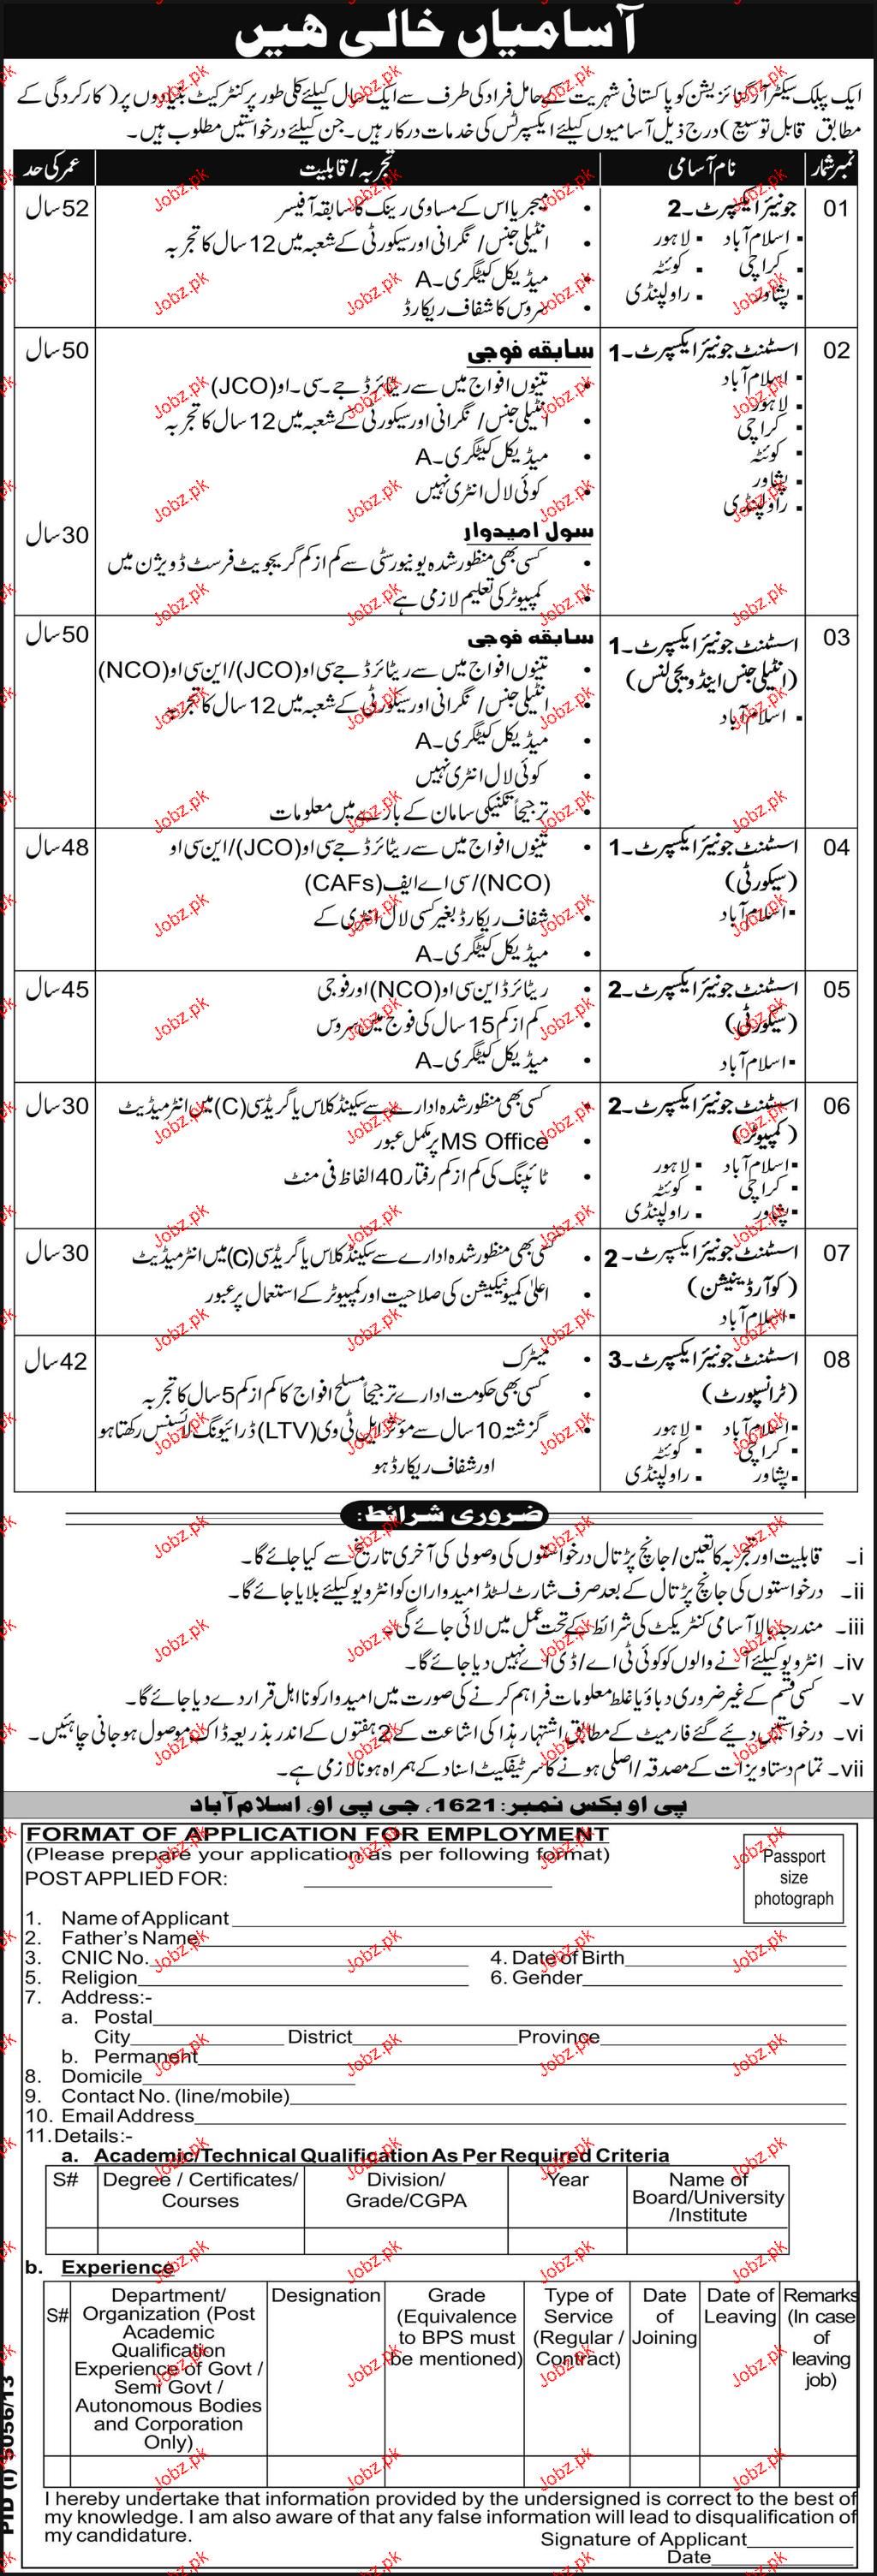 آسامیاں خالی ھیں
ایک پبلک سیکٹر آرگنائزیشن کو پاکستانی شہریت کے حامل افراد کی طرف سے ایک سال کیلئے کلی طور پر کنٹریکٹ بنیادوں پر (کارکردگی کے
مطابق قابل توسیع) درج ذیل آسامیوں کیلئے ایکسپرٹس کی خدمات درکار ہیں۔ جن کیلئے درخواستیں مطلوب ہیں۔
نمبر شمار نام آسامی تجربہ/قابلیت عمر کی حد
01 جونیئر ایکسپرٹ۔2
▪ اسلام آباد ▪ لاہور
▪ کراچی ▪ کوئٹہ
▪ پشاور ▪ راولپنڈی
• میجر یا اس کے مساوی رینک کا سابقہ آفیسر
• انٹیلی جنس/نگرانی اور سیکورٹی کے شعبہ میں 12 سال کا تجربہ
• میڈیکل کیٹگری۔A
• سروس کا شفاف ریکارڈ
52 سال
02 اسسٹنٹ جونیئر ایکسپرٹ۔1
▪ اسلام آباد
▪ لاہور
▪ کراچی
▪ کوئٹہ
▪ پشاور
▪ راولپنڈی
سابقہ فوجی
• تینوں افواج میں سے ریٹائرڈ جے۔سی۔او (JCO)
• انٹیلی جنس/نگرانی اور سیکورٹی کے شعبہ میں 12 سال کا تجربہ
• میڈیکل کیٹگری۔A
• کوئی لال انٹری نہیں
50 سال
سول امیدوار
• کسی بھی منظور شدہ یونیورسٹی سے کم از کم گریجویٹ فرسٹ ڈویژن میں
• کمپیوٹر کی تعلیم لازمی ہے
30 سال
03 اسسٹنٹ جونیئر ایکسپرٹ۔1
(انٹیلی جنس اینڈ ویجی لنس)
▪ اسلام آباد
سابقہ فوجی
• تینوں افواج میں سے ریٹائرڈ جے سی او (JCO)/این سی او (NCO)
• انٹیلی جنس/نگرانی اور سیکورٹی کے شعبہ میں 12 سال کا تجربہ
• میڈیکل کیٹگری۔A
• کوئی لال انٹری نہیں
• ترجیحاً تکنیکی سامان کے بارے میں معلومات
50 سال
04 اسسٹنٹ جونیئر ایکسپرٹ۔1
(سیکورٹی)
▪ اسلام آباد
• تینوں افواج میں سے ریٹائرڈ جے سی او (JCO)/این سی او
(NCO)/سی اے ایف (CAFs)
• شفاف ریکارڈ بغیر کسی لال انٹری کے
• میڈیکل کیٹگری۔A
48 سال
05 اسسٹنٹ جونیئر ایکسپرٹ۔2
(سیکورٹی)
▪ اسلام آباد
• ریٹائرڈ این سی او (NCO) اور فوجی
• کم از کم 15 سال کی فوج میں سروس
• میڈیکل کیٹگری۔A
45 سال
06 اسسٹنٹ جونیئر ایکسپرٹ۔2
(کمپیوٹر)
▪ اسلام آباد ▪ لاہور
▪ کراچی ▪ کوئٹہ
▪ پشاور ▪ راولپنڈی
• کسی بھی منظور شدہ ادارے سے سیکنڈ کلاس یا گریڈ سی (C) میں انٹرمیڈیٹ
• MS Office پر مکمل عبور
• ٹائپنگ کی کم از کم رفتار 40 الفاظ فی منٹ
30 سال
07 اسسٹنٹ جونیئر ایکسپرٹ۔2
(کوآرڈینیشن)
▪ اسلام آباد
• کسی بھی منظور شدہ ادارے سے سیکنڈ کلاس یا گریڈ سی (C) میں انٹرمیڈیٹ
• اعلیٰ کمیونیکیشن کی صلاحیت اور کمپیوٹر کے استعمال پر عبور
30 سال
08 اسسٹنٹ جونیئر ایکسپرٹ۔3
(ٹرانسپورٹ)
▪ اسلام آباد ▪ لاہور
▪ کراچی ▪ کوئٹہ
▪ پشاور ▪ راولپنڈی
• میٹرک
• کسی بھی حکومت ادارے ترجیحاً مسلح افواج کا کم از کم 5 سال کا تجربہ
• گزشتہ 10 سال سے مؤثر ایل ٹی وی (LTV) ڈرائیونگ لائسنس رکھتا ہو
اور شفاف ریکارڈ ہو
42 سال
ضروری شرائط:
i۔ قابلیت اور تجربہ کا تعین/جانچ پڑتال درخواستوں کی وصولی کی آخری تاریخ سے کیا جائے گا۔
ii۔ درخواستوں کی جانچ پڑتال کے بعد صرف شارٹ لسٹڈ امیدواران کو انٹرویو کیلئے بلایا جائے گا۔
iii۔ مندرجہ بالا آسامی کنٹریکٹ کی شرائط کے تحت عمل میں لائی جائے گی۔
iv۔ انٹرویو کیلئے آنے والوں کو کوئی ٹی اے/ڈی اے نہیں دیا جائے گا۔
v۔ کسی قسم کے غیر ضروری دباؤ یا غلط معلومات فراہم کرنے کی صورت میں امیدوار کو نااہل قرار دے دیا جائے گا۔
vi۔ درخواستیں دیئے گئے فارمیٹ کے مطابق اشتہار ہذا کی اشاعت کے 2 ہفتوں کے اندر بذریعہ ڈاک موصول ہو جانی چاہئیں۔
vii۔ تمام دستاویزات کے مصدقہ/اصلی ہونے کا سرٹیفکیٹ اسناد کے ہمراہ ہونا لازمی ہے۔
پی او بکس نمبر: 1621، جی پی او، اسلام آباد
FORMAT OF APPLICATION FOR EMPLOYMENT
(Please prepare your application as per following format)
POST APPLIED FOR:
Passport size photograph
1. Name of Applicant
2. Father's Name
3. CNIC No. 4. Date of Birth
5. Religion 6. Gender
7. Address:-
a. Postal
City District Province
b. Permanent
8. Domicile
9. Contact No. (line/mobile)
10. Email Address
11. Details:-
a. Academic/Technical Qualification As Per Required Criteria
S# Degree / Certificates/ Courses Division/ Grade/CGPA Year Name of Board/University /Institute
b. Experience
S# Department/ Organization (Post Academic Qualification Experience of Govt / Semi Govt / Autonomous Bodies and Corporation Only) Designation Grade (Equivalence to BPS must be mentioned) Type of Service (Regular / Contract) Date of Joining Date of Leaving Remarks (In case of leaving job)
I hereby undertake that information provided by the undersigned is correct to the best of
my knowledge. I am also aware of that any false information will lead to disqualification of
my candidature.
Signature of Applicant
Date
PID (I) 5056/13
Jobz.pk